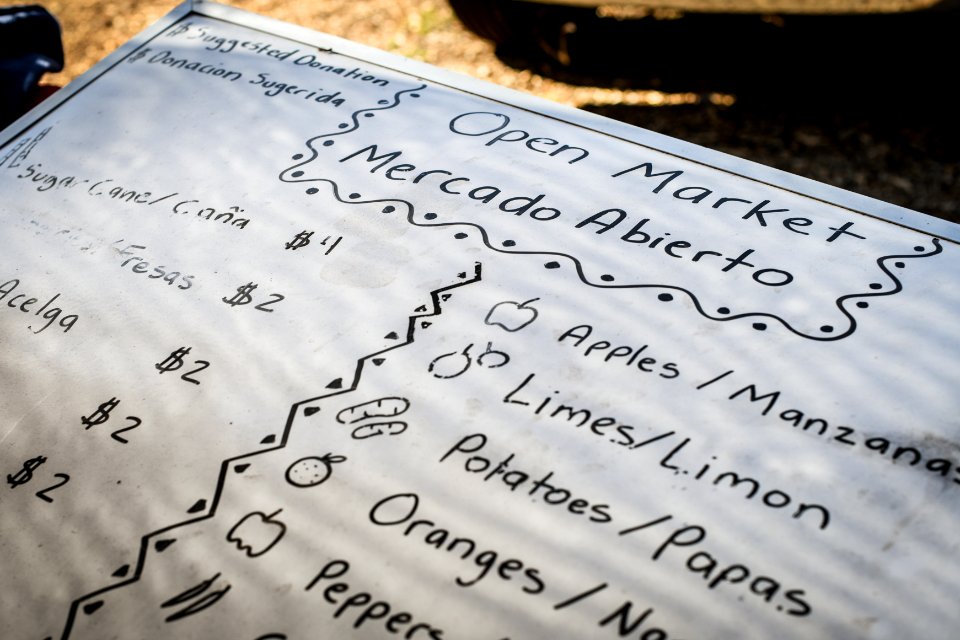 $ Suggested Donation
$ Donacion Sugerida
Open Market
Mercado Abierto
Sugar Cane/ Caña $4
Fresas $2
Acelga $2
$2
$2
Apples / Manzanas
Limes/Limon
Potatoes / Papas
Oranges /
Peppers